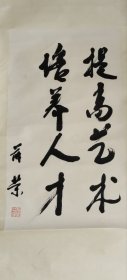 提高艺术
培养人才
蒋荣